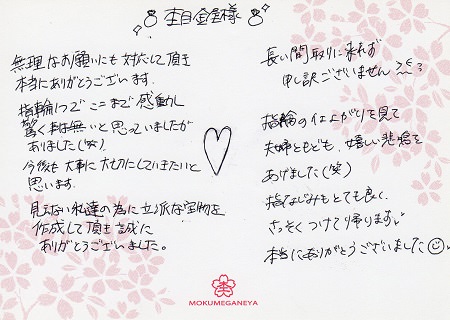 杢目金屋様
無理なお願いにも対応して頂き
本当にありがとうございます.
指輪1つでここまで感動し
驚く事は無いと思っていましたが
ありました(笑)
今後も大事に大切にしていきたいと
思います.
見えない私達の為に立派な宝物を
作成して頂き誠に
ありがとうございました。
長い間取りに来れず
申し訳ございません
指輪の仕上がりを見て
夫婦ともども、嬉しい悲鳴を
あげました(笑)
指なじみもとても良く、
さっそくつけて帰ります
本当にありがとうございました
MOKUMEGANEYA